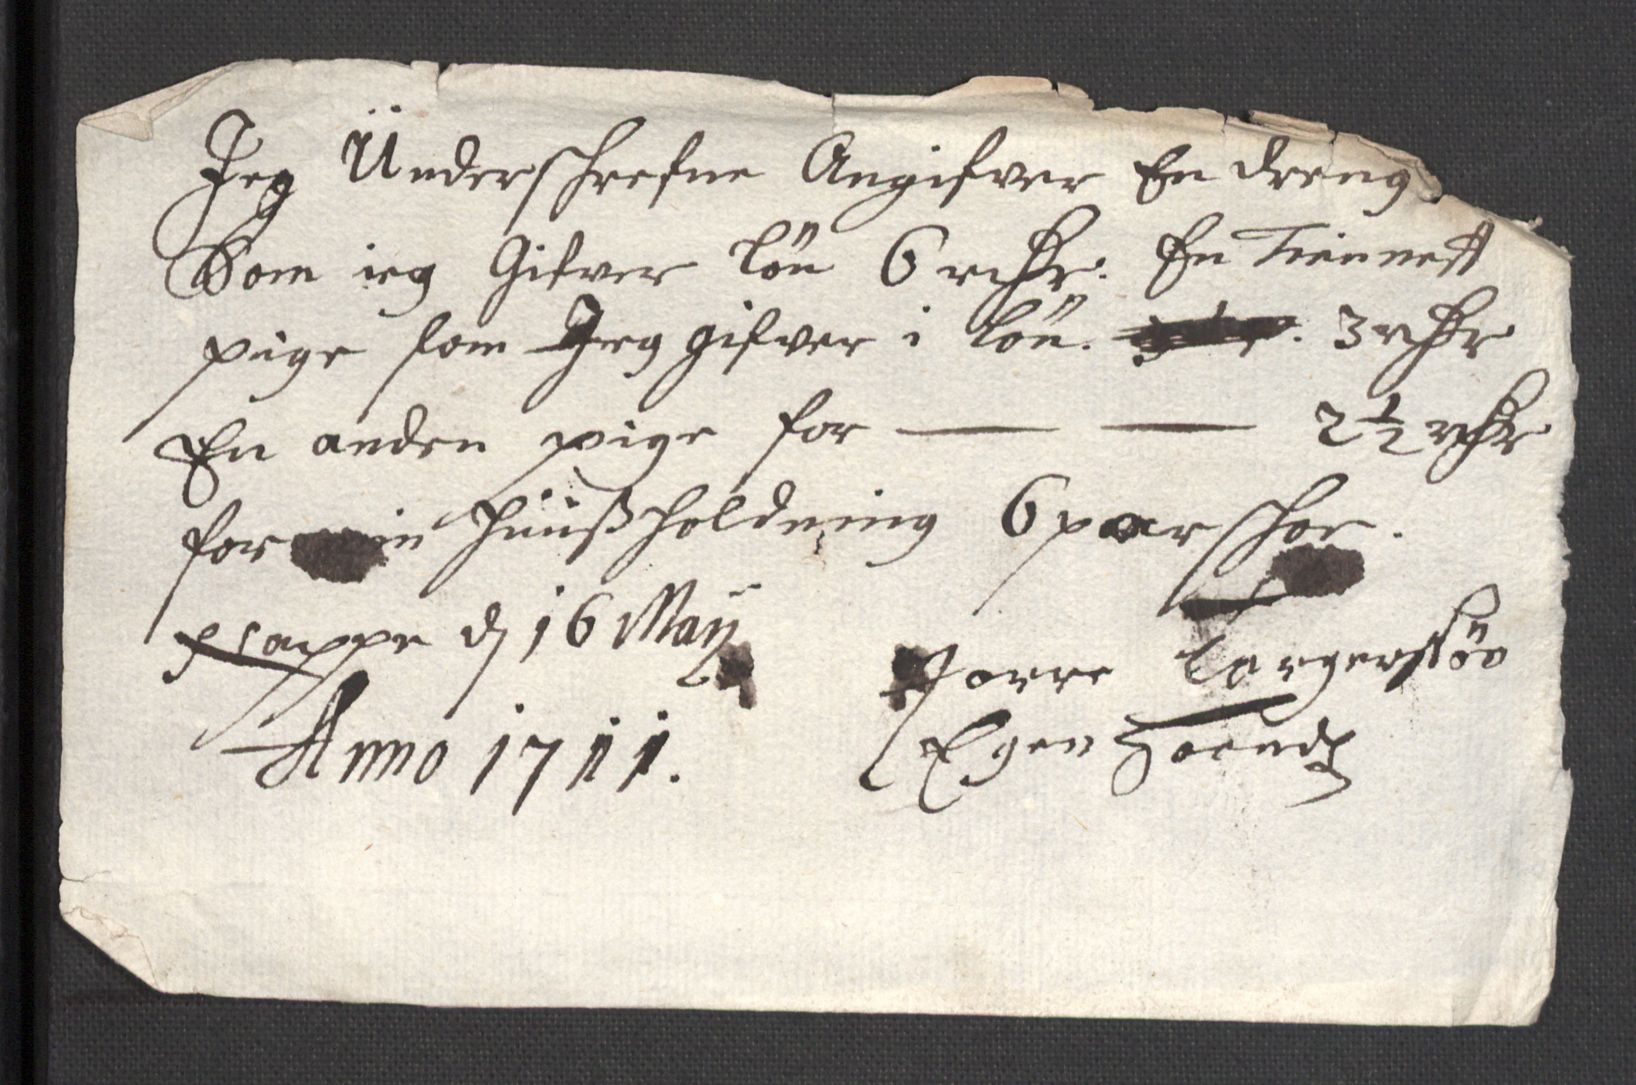 Jeg Ünderschrefne Angifver En dreng
Som ieg Gifver lön 6 rdr. En Tienneste
pige som Jeg gifver i lön. 3 rdr
En anden pige for — — 2½ rdr
for min Huußholdning 6 par schoe.
d 16 Maÿ
Anno 1711.
Torgerssön
Egen Haend